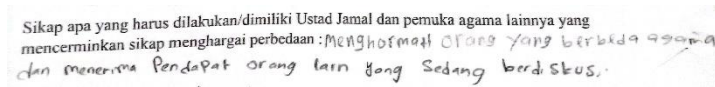 Sikap apa yang harus dilakukan/dimiliki Ustad Jamal dan pemuka agama lainnya yang
mencerminkan sikap menghargai perbedaan : Menghormati orang yang berbeda agama
dan menerima Pendapat orang lain yang Sedang berdiskus.